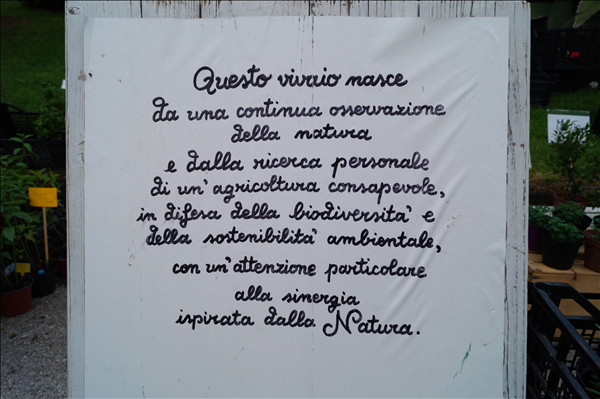 Questo vivaio nasce
da una continua osservazione
della natura
e dalla ricerca personale
di un'agricoltura consapevole,
in difesa della biodiversita' e
della sostenibilita' ambientale,
con un'attenzione particolare
alla sinergia
ispirata dalla Natura.